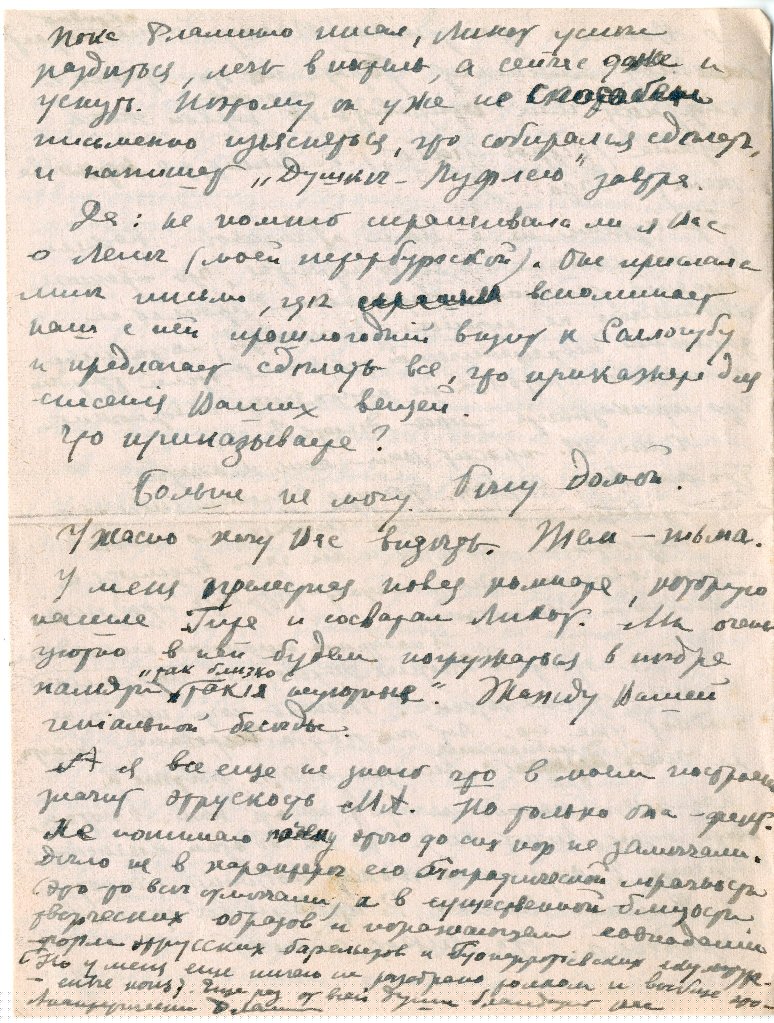 Пока Фламинго писал, Ликот успел
раздѣться, лечь в постель, а сейчас даже и
уснуть. Поэтому он уже не способен
письменно изъясняться, что собирался сдѣлать,
и напишет „Душкѣ - Пуфлею" завтра.
Да: не помню спрашивала ли я Вас
о Ленѣ (моей петербургской). Она прислала
мнѣ письмо, гдѣ вспоминает
наш с ней прошлогодній визит к Саллогубу
и предлагает сдѣлать все, что прикажете для
спасенія Ваших вещей.
Что приказываете?
Больше не могу. Бѣгу домой.
Ужасно хочу Вас видѣть. Тем - тьма.
У меня прелестная новая комната, которую
нашла Тата и сосватал Ликот. Мы очень
уютно в ней будем погружаться в нѣдра
памяти „так близко такія уютныя". Жажду Вашей
геніальной бесѣды.
А я все еще не знаю что в моем
значит этрускость МА. Но только она - факт.
Не понимаю почему этого до сих пор не замѣчали.
Дѣло не в характерѣ его біографической мрачности
(это-то всѣ отмѣчали), а в существенной близости
творческих образов и поражающем совпаденіи
форм этрусских барельефов и Буонарротіевских скульптур.
(Но у меня еще ничего не разобрано толком и вообще
). Еще раз от всей души благодарит Вас